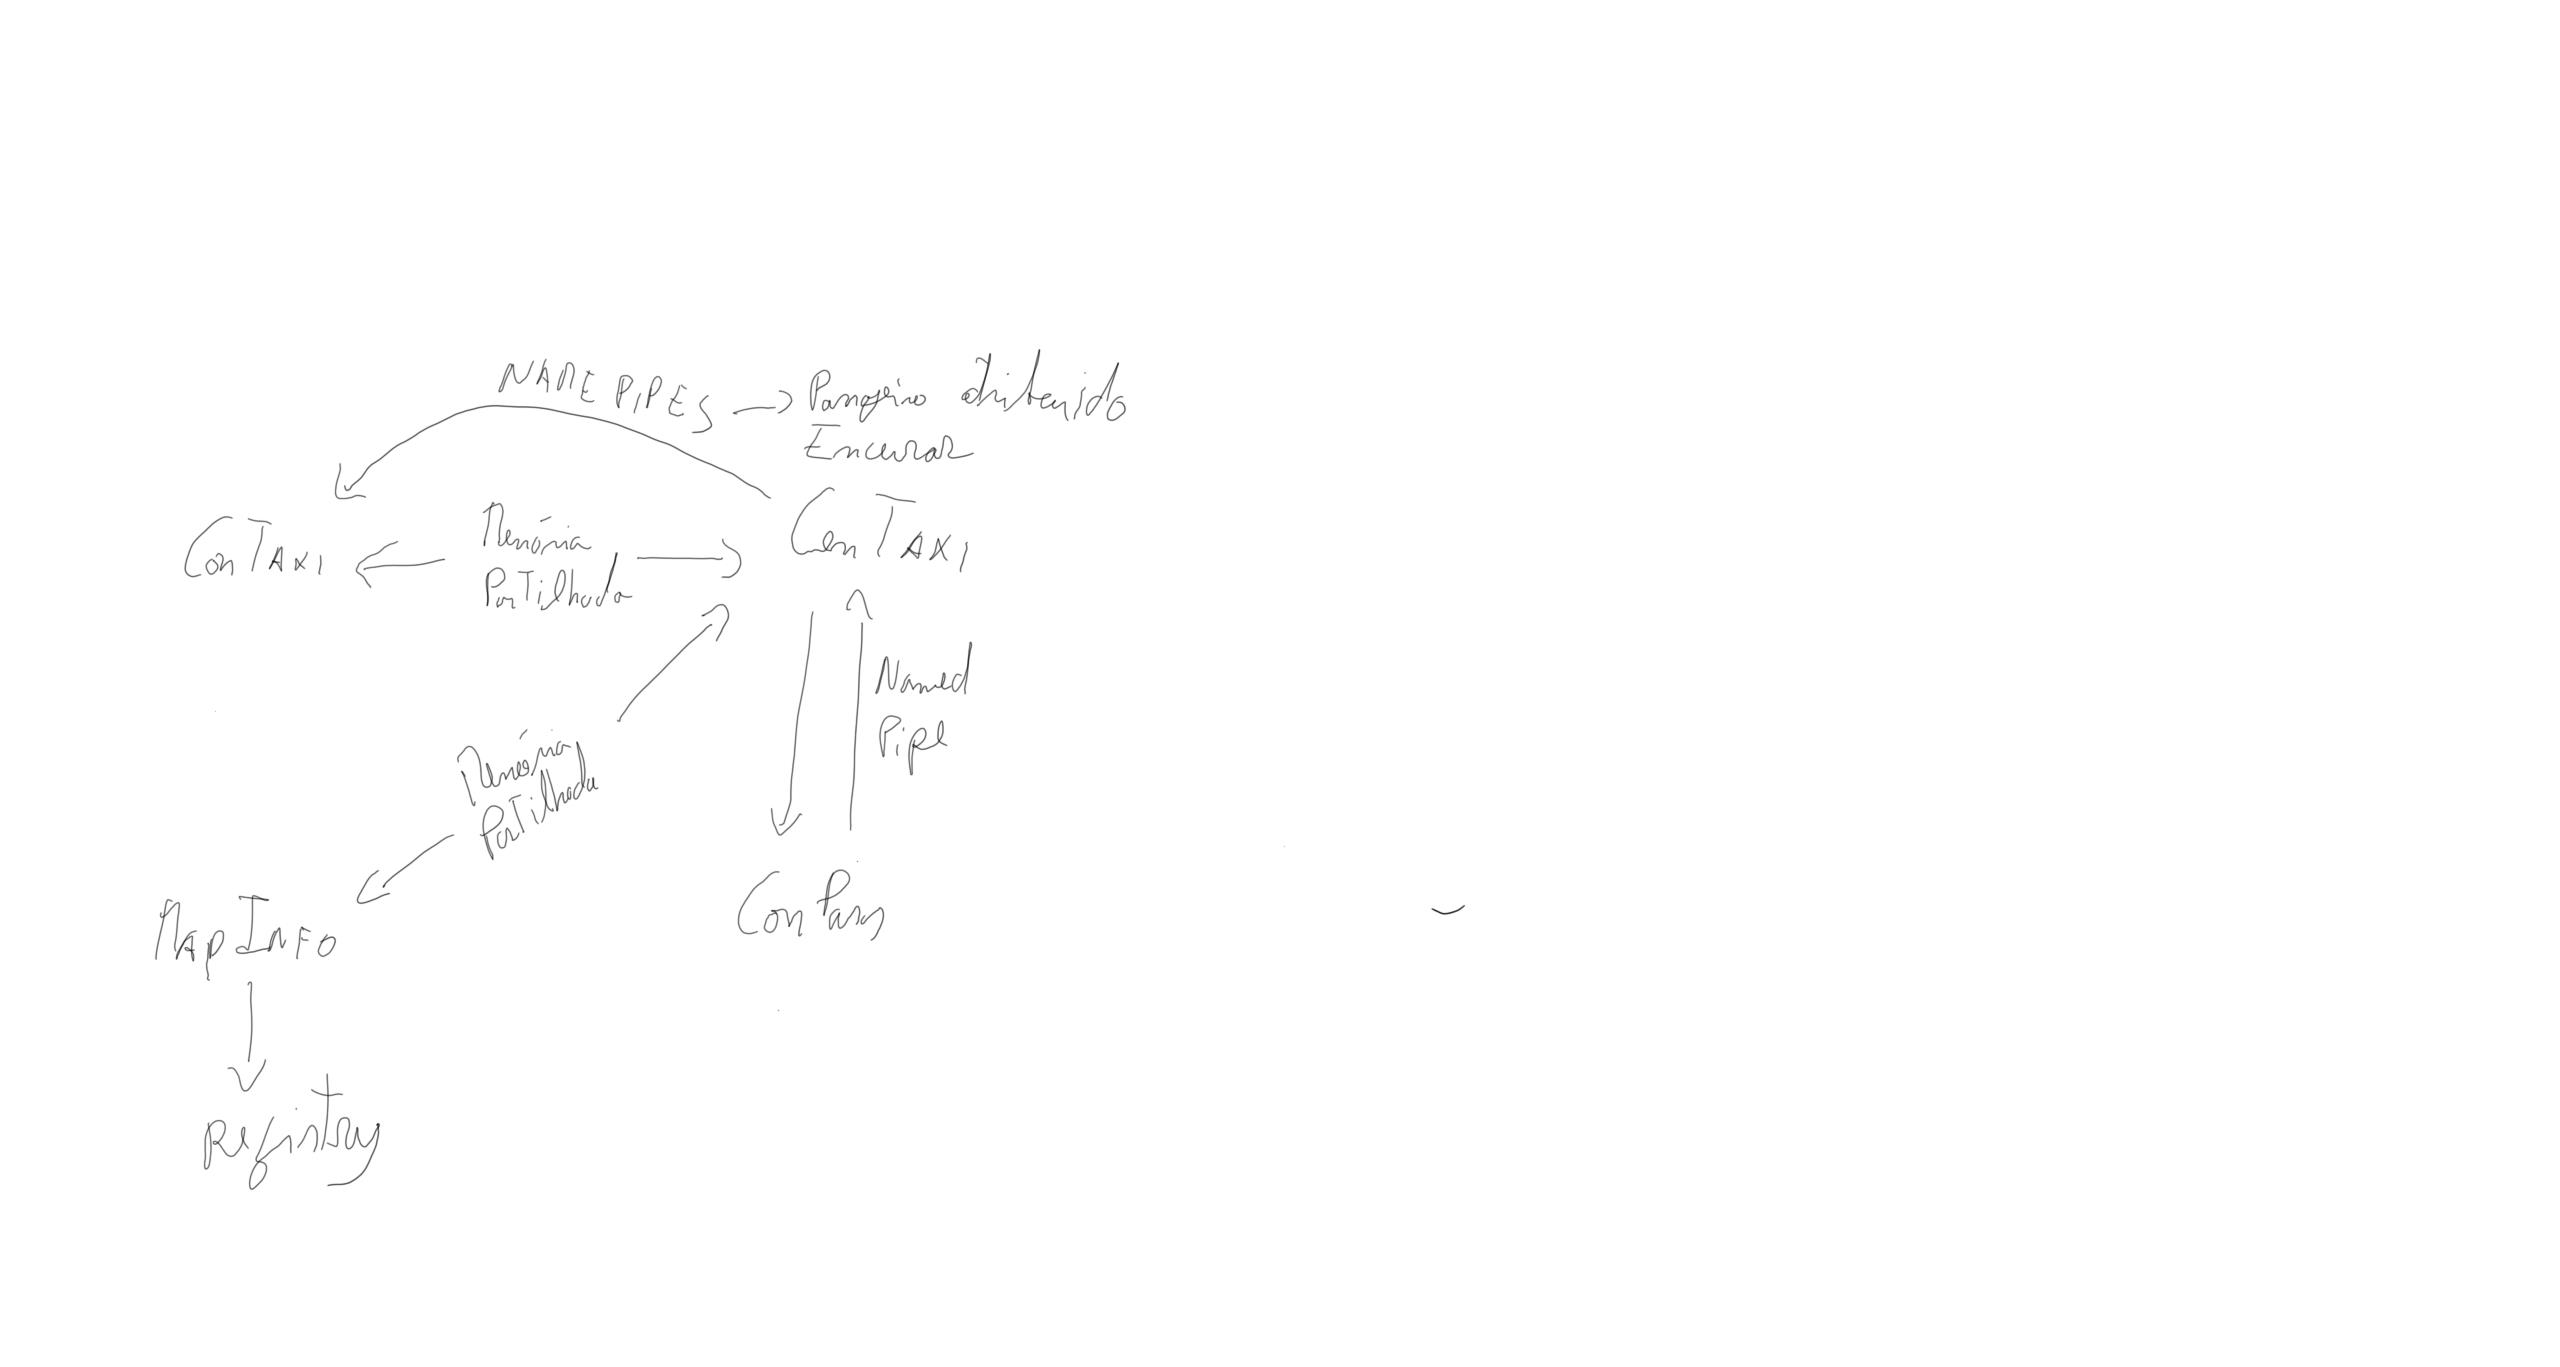 NAME PIPES → Passageiro atribuído
Encerrar
ConTAXI
Memória
Partilhada
CenTAXI
Named
Pipe
Memória
Partilhada
MAPINFO
ConPass
Registry